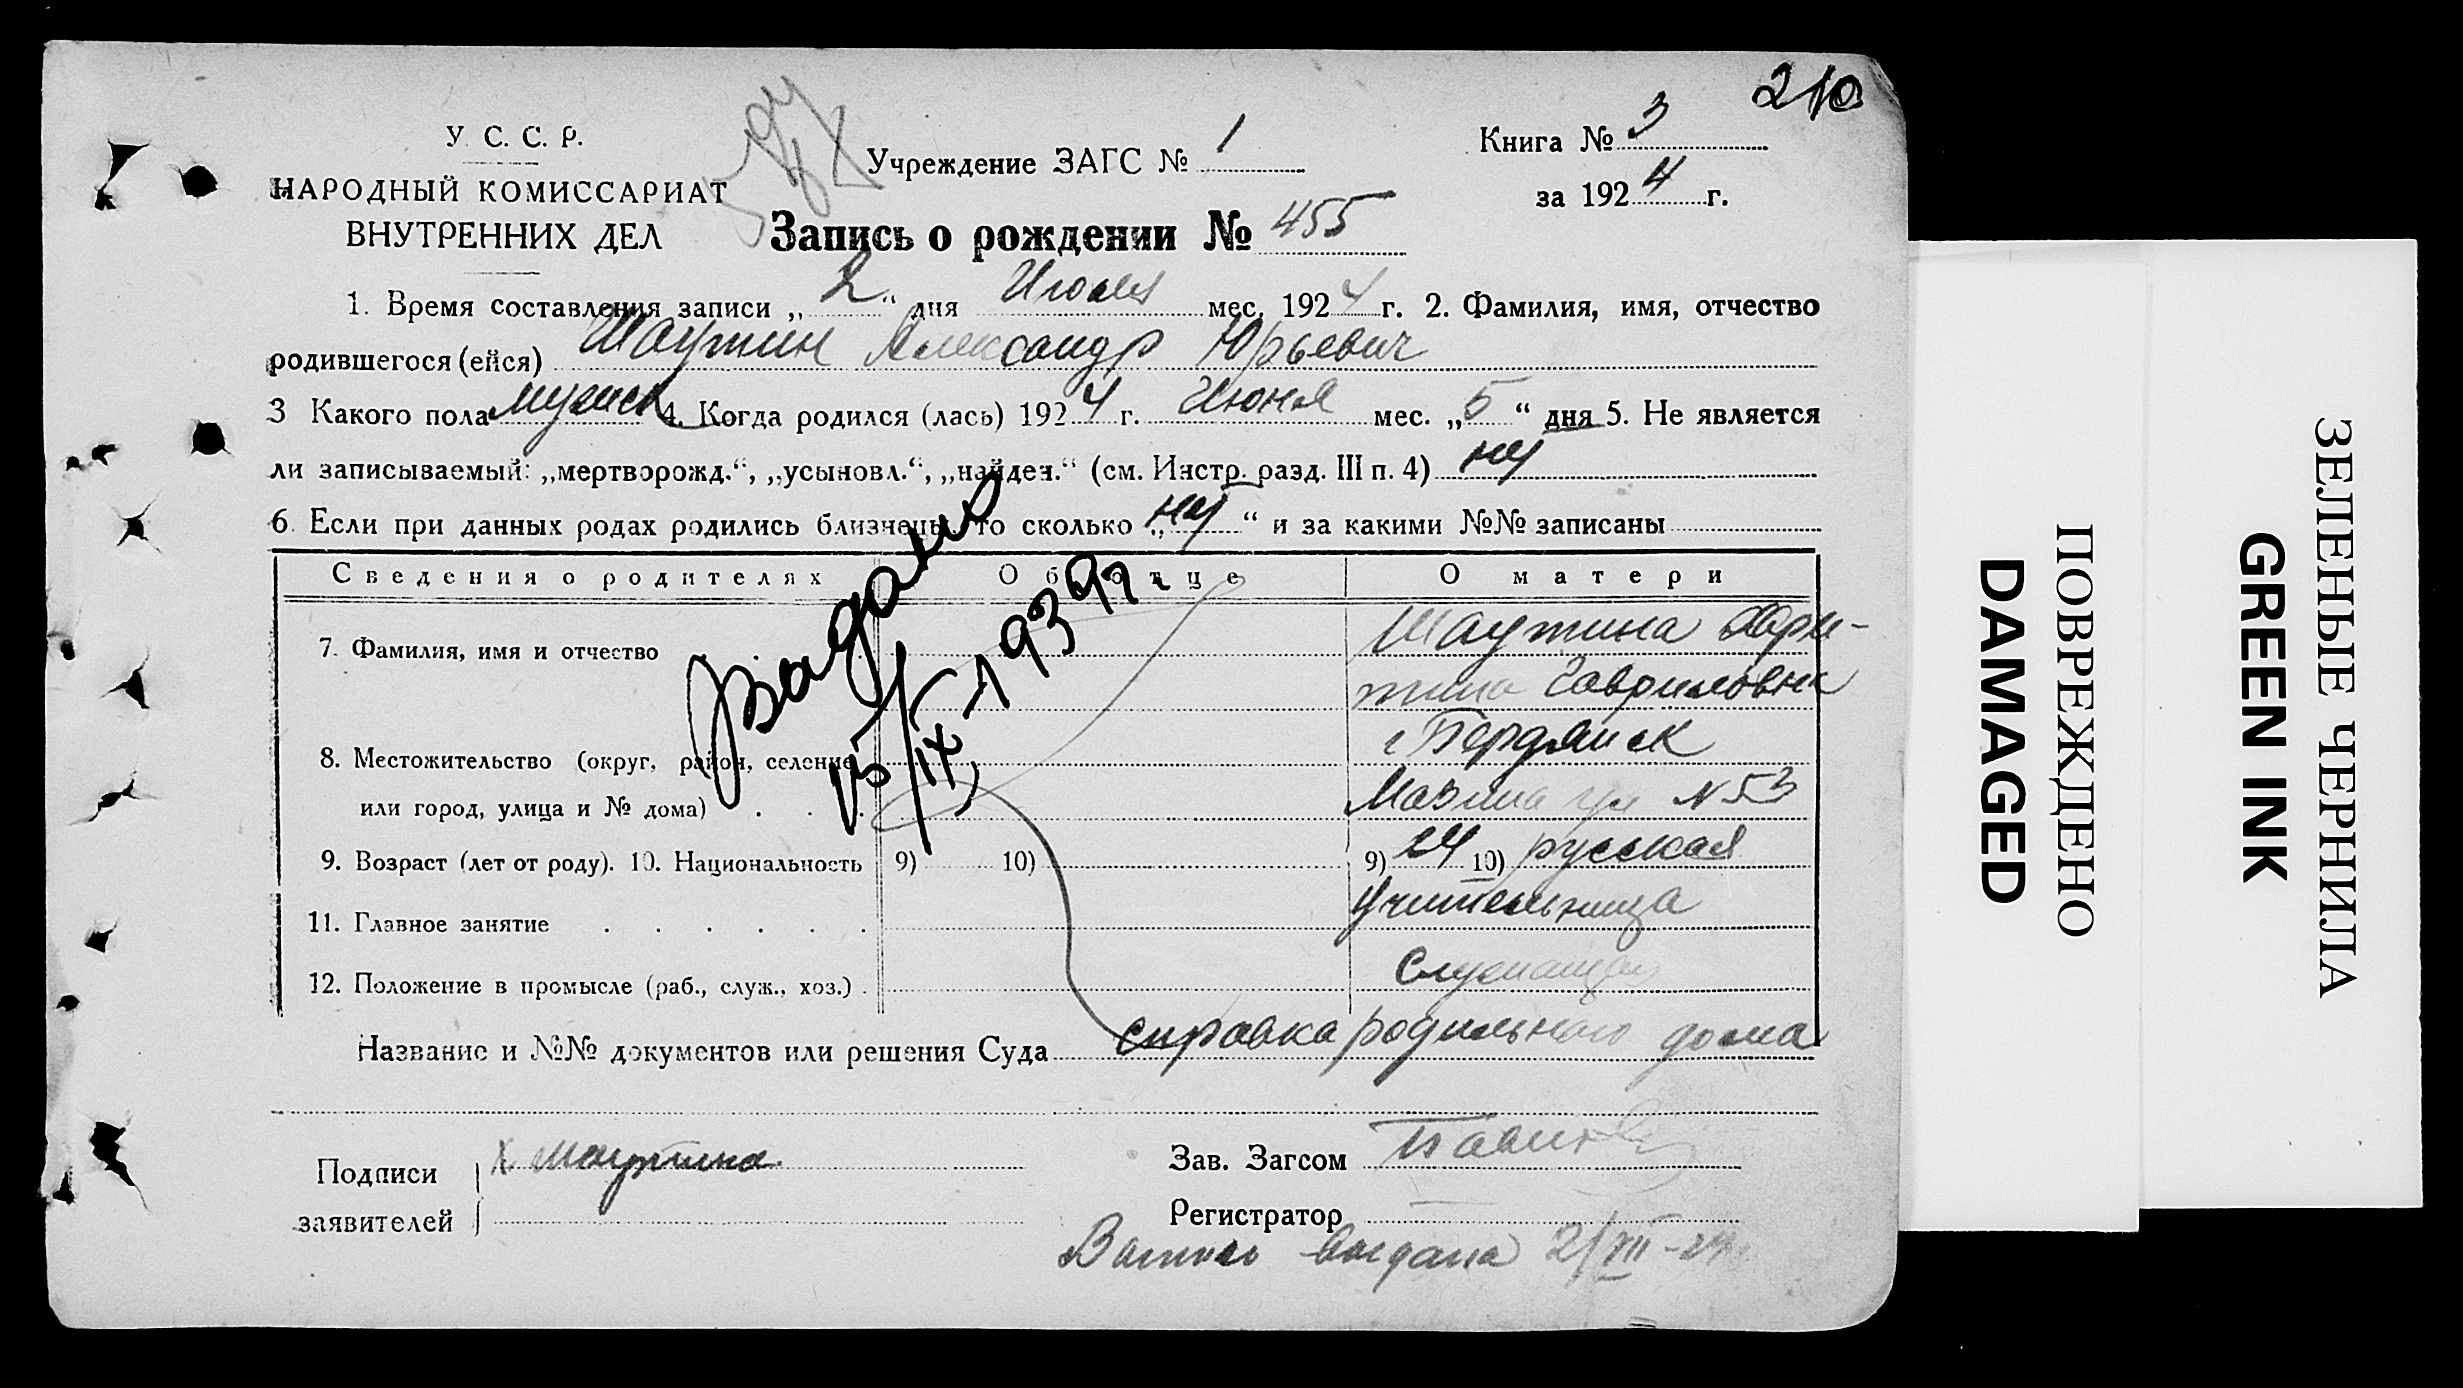 210
У. С. С. Р.
НАРОДНЫЙ КОМИССАРИАТ
ВНУТРЕННИХ ДЕЛ
Учреждение ЗАГС № 1
Книга № 3
за 1924 г.
Запись о рождении № 455
1. Время составления записи „2“ дня Июля мес. 1924 г. 2. Фамилия, имя, отчество
родившегося (ейся) Шаутин Александр Юрьевич
3 Какого пола мужск 4. Когда родился (лась) 1924 г. Июня мес. „5“ дня 5. Не является
ли записываемый: „мертворожд.“, „усыновл.“, „найден.“ (см. Инстр. разд. III п. 4) нет
6. Если при данных родах родились близнецы, то сколько „нет“ и за какими №№ записаны
Сведения о родителях Об отце О матери
7. Фамилия, имя и отчество Шаутина Хари-
тина Гавриловна
8. Местожительство (округ, район, селение г Бердянск
или город, улица и № дома) Мазина ул N 53
9. Возраст (лет от роду). 10. Национальность 9) 10) 9) 24 10) русская
11. Главное занятие Учительница
12. Положение в промысле (раб., служ., хоз.) Служащая
Выдано
15/IX-1939г.
Название и №№ документов или решения Суда справка родильного дома
Подписи
заявителей
х Шаутина
Зав. Загсом
Регистратор
выдана 2/VII-24
ПОВРЕЖДЕНО
DAMAGED
ЗЕЛЕНЫЕ ЧЕРНИЛА
GREEN INK